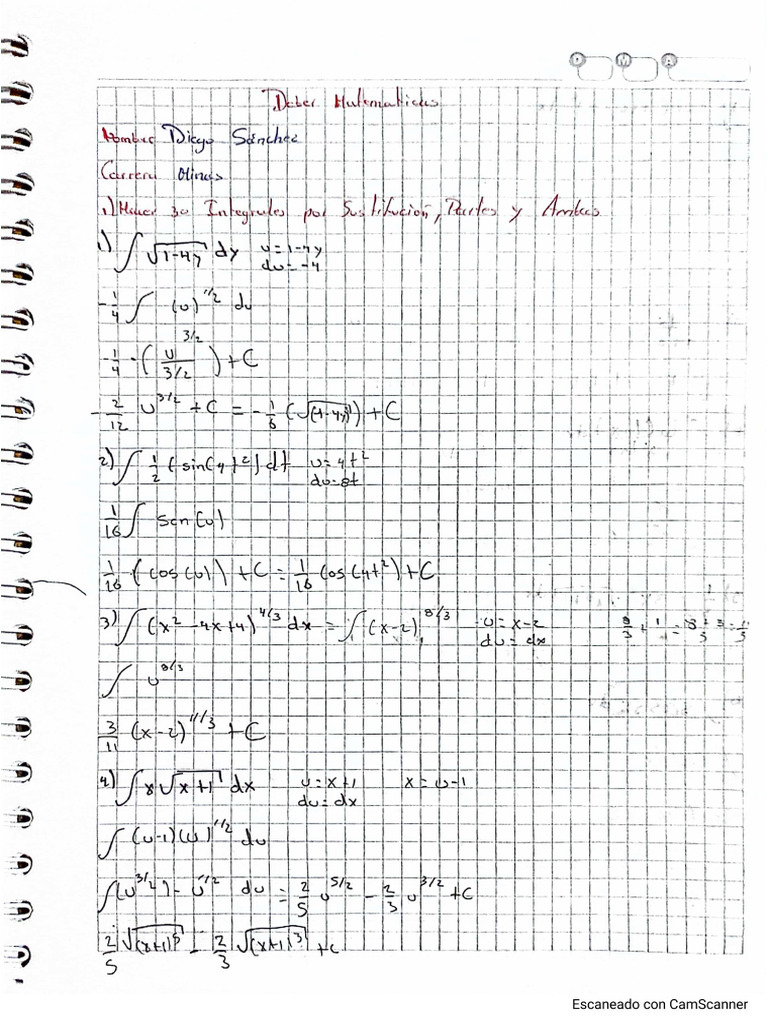 D M A
Deber Matematicas
Nombre Diego Sánchez
Carrera Minas
1) Hacer 30 Integrales por Sustitución, Partes y Ambas
1) ∫ √(1-4y) dy u=1-4y
du=-4
-1/4 ∫ (u)^1/2 du
-1/4 · (u^3/2 / 3/2) + C
-2/12 u^3/2 + C = -1/6 (√(1-4y)³) + C
2) ∫ 1/2 t sin(4t²) dt u=4t²
du=8t
1/16 ∫ sen(u)
1/16 (cos(u)) + C = 1/16 cos(4t²) + C
3) ∫ (x² -4x+4)^4/3 dx = ∫ (x-2)^8/3 u=x-2
du=dx
∫ u^8/3
3/11 (x-2)^11/3 + C
4) ∫ x√(x+1) dx u=x+1 x=u-1
du=dx
∫ (u-1)(u)^1/2 du
∫(u^3/2) - u^1/2 du = 2/5 u^5/2 - 2/3 u^3/2 + C
2/5 √(x+1)^5 - 2/3 √(x+1)^3 + C
Escaneado con CamScanner